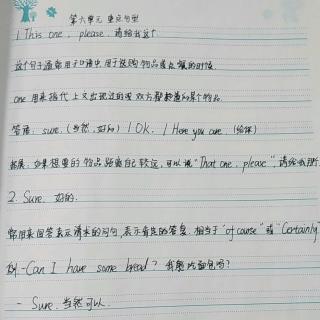 第六单元 重点句型
1. This one, please. 请给我这个.
这个句子通常用于口语中,用于选购物品或点餐的时候.
one 用来指代上文出现过的或双方都知道的某个物品.
答语: sure. (当然, 好的) / Ok. / Here you are. (给你)
拓展: 如果想要的物品距离自己较远, 可以说 "That one, please", 请给我那
2. Sure. 好的.
常用来回答表示请求的问句, 表示肯定的答复. 相当于 "of course" 或 "Certainly"
例 - Can I have some bread? 我能吃面包吗?
- Sure. 当然可以.